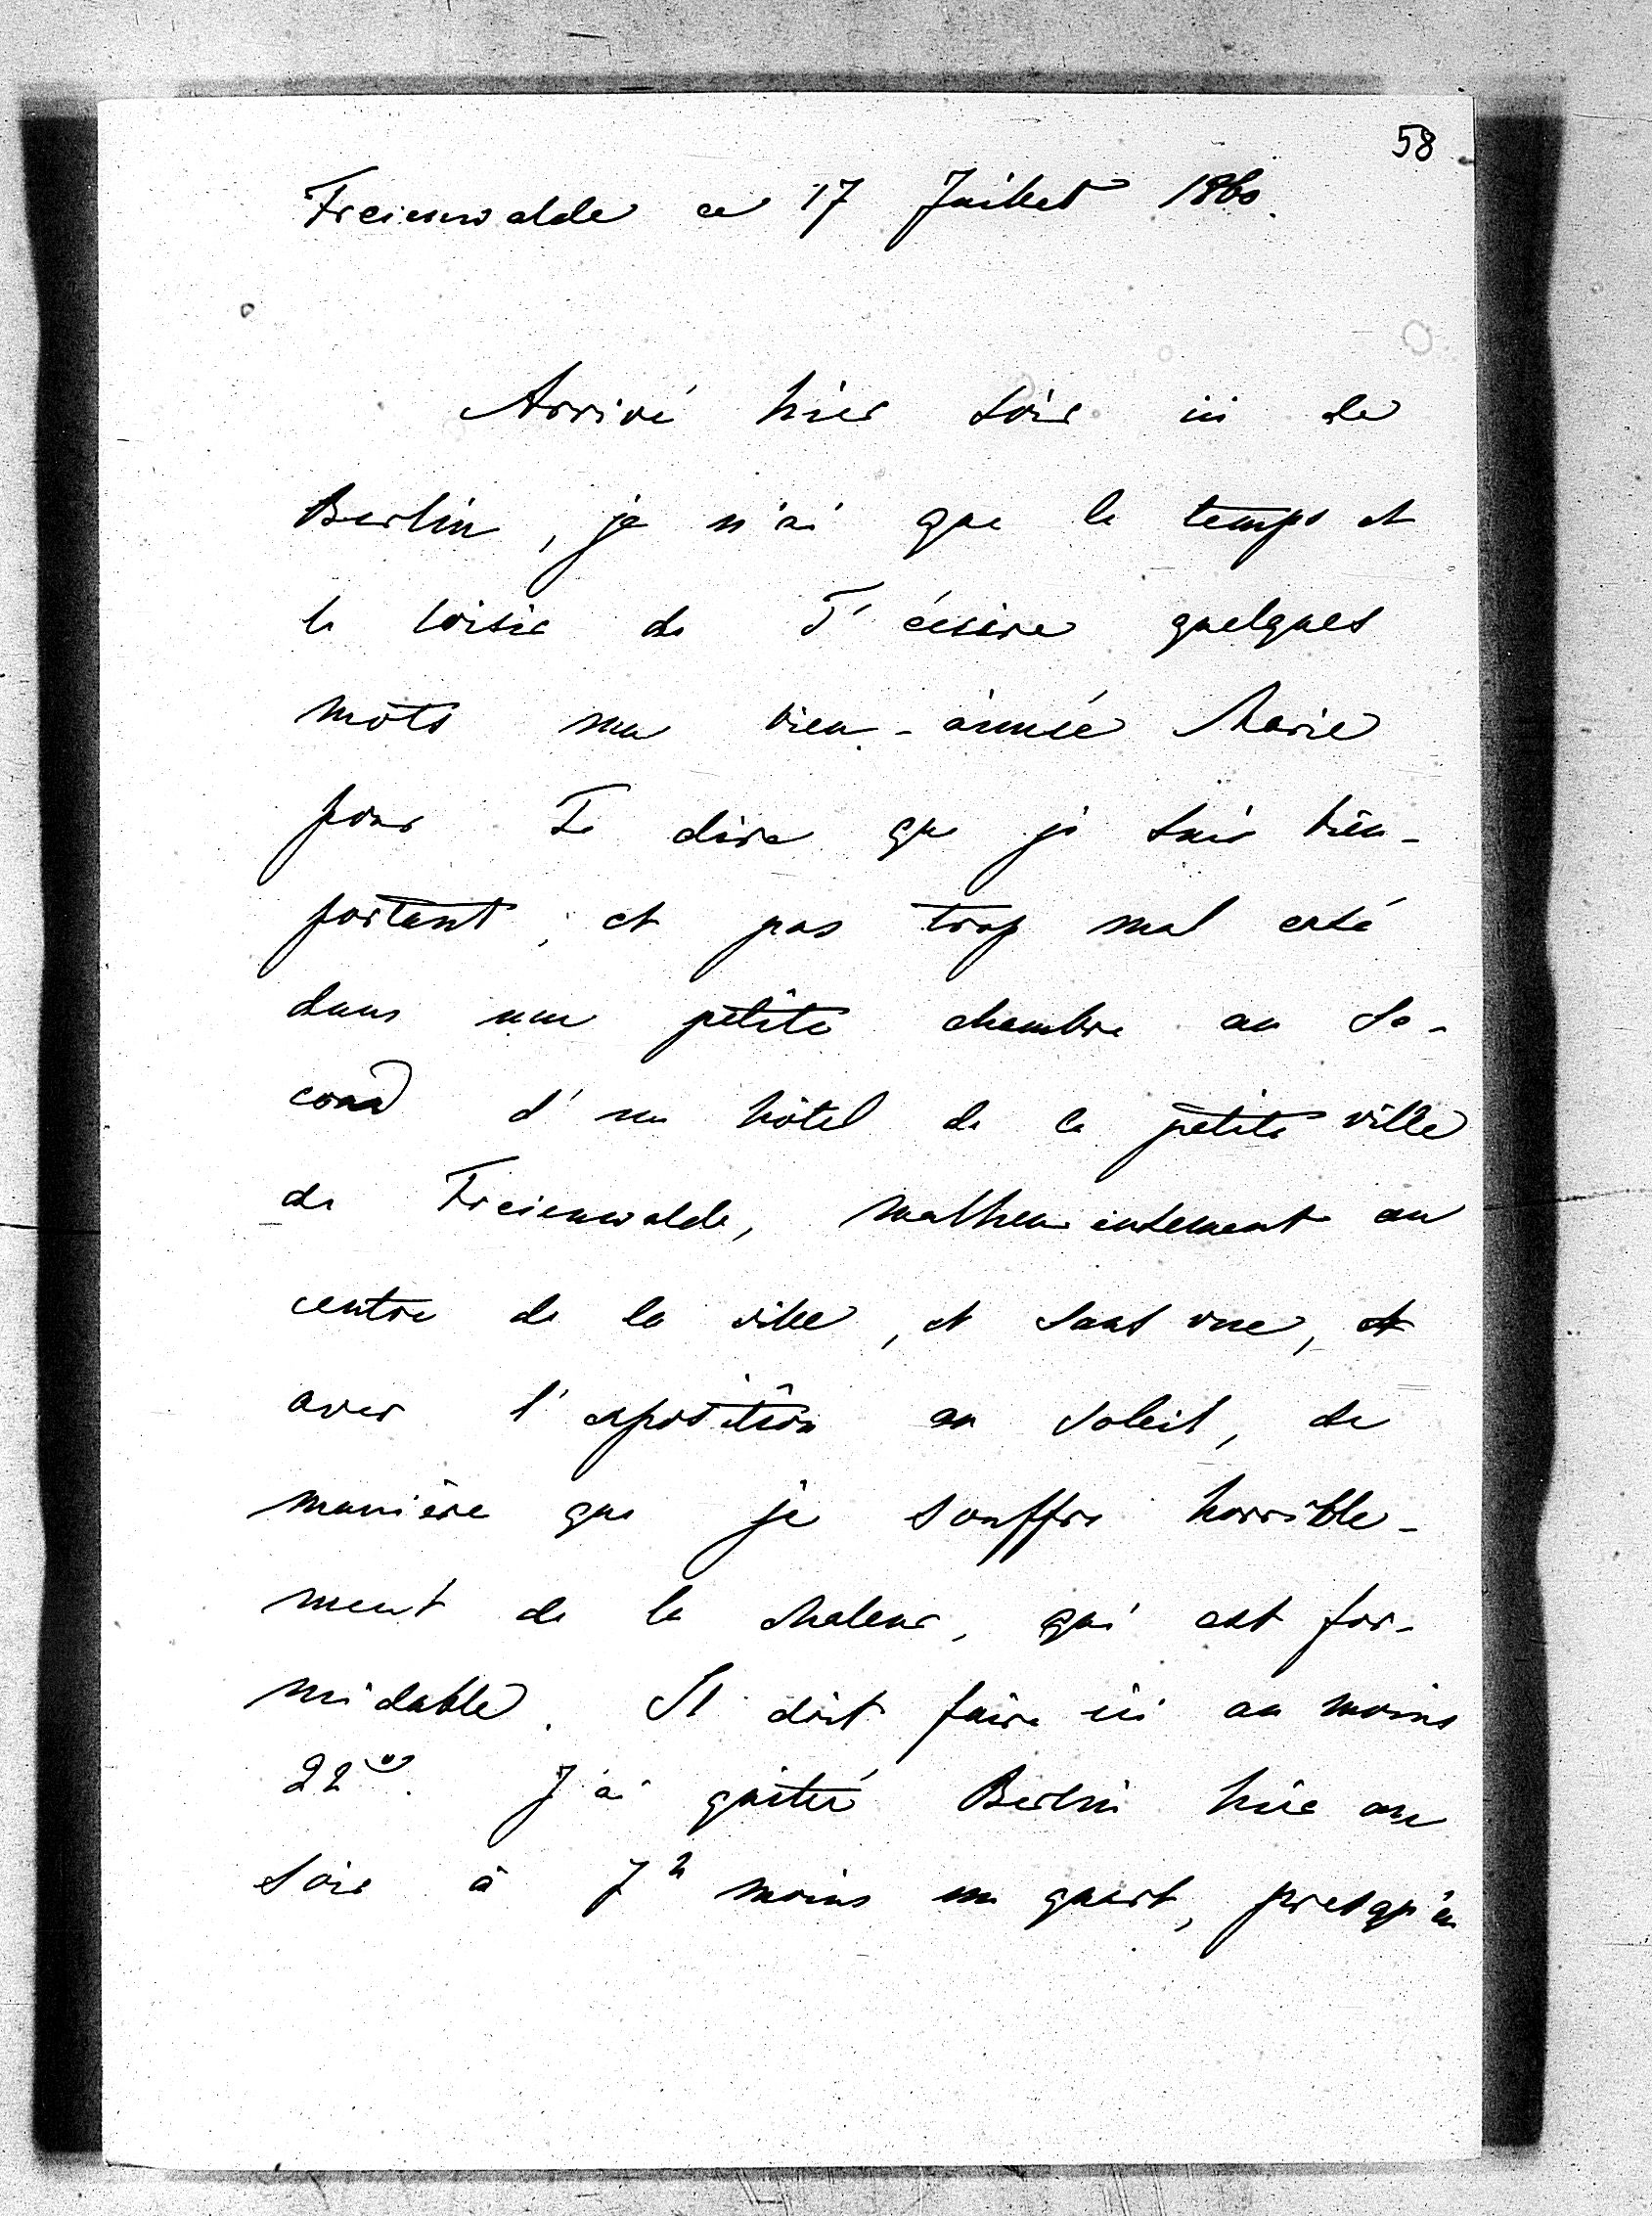 58
Freienwalde ce 17 Juillet 1860.
Arrivé hier soir ici de
Berlin, je n'ai que le temps et
le loisir de T'écrire quelques
mots ma bien-aimée Marie
pour Te dire que je suis bien-
portant, et pas trop mal
dans une petite chambre au se-
cond d'un hôtel de la petite ville
de Freienwalde, malheureusement au
centre de la ville, et sans vue, et
avec l'exposition au soleil, de
manière que je souffre horrible-
ment de la chaleur, qui est for-
midable. Il doit faire ici au moins
22°. J'ai quitté Berlin hier au
soir à 7h moins un quart, presqu'en